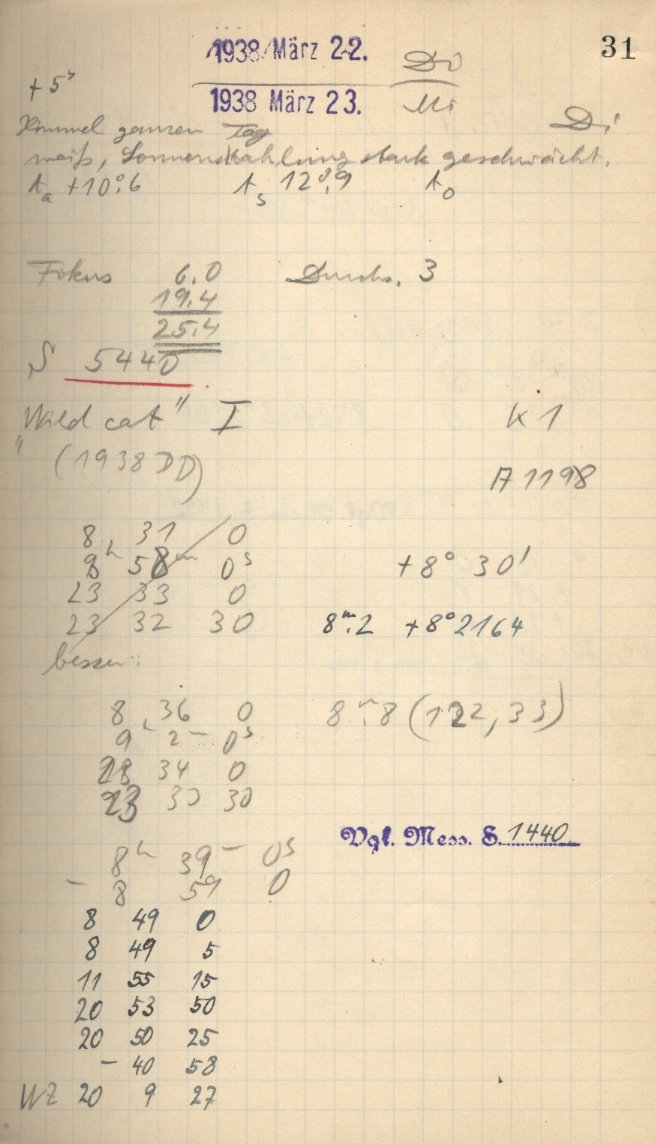 31
1938 März 22. Do
1938 März 23. Mi
+5ˢ
Himmel ganzen Tag Di
weiß, Sonnenstrahlung stark geschwächt.
tₐ +10°.6 tₛ 12°.9 t₀
Fokus 6.0 Durchs. 3
19.4
25.4
S 5440
"Wild cat" I K 1
(1938 DD)
A 1198
8 31 0
8ʰ 58ᵐ 0ˢ +8° 30'
23 33 0
23 32 30 8ᵐ.2 +8° 2164
besser:
8 36 0 8ᵐ.8 (122, 33)
9ʰ 2ᵐ 0ˢ
23 34 0
23 33 30
Vgl. Mess. S. 1440
8ʰ 39ᵐ 0ˢ
– 8 59 0
8 49 0
8 49 5
11 55 15
20 53 50
20 50 25
– 40 58
WZ 20 9 27